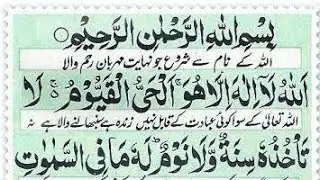 بِسْمِ اللهِ الرَّحْمٰنِ الرَّحِيْمِ
اللہ کے نام سے شروع جو نہایت مہربان رحم والا
اَللهُ لَاۤ اِلٰهَ اِلَّا هُوَ ۚ اَلْحَيُّ الْقَيُّوْمُ ۚ لَا
اللہ تعالیٰ کے سوا کوئی عبادت کے قابل نہیں زندہ ہے سنبھالنے والا ہے نہ
تَاْخُذُهٗ سِنَةٌ وَّلَا نَوْمٌ ؕ لَهٗ مَا فِي السَّمٰوٰتِ